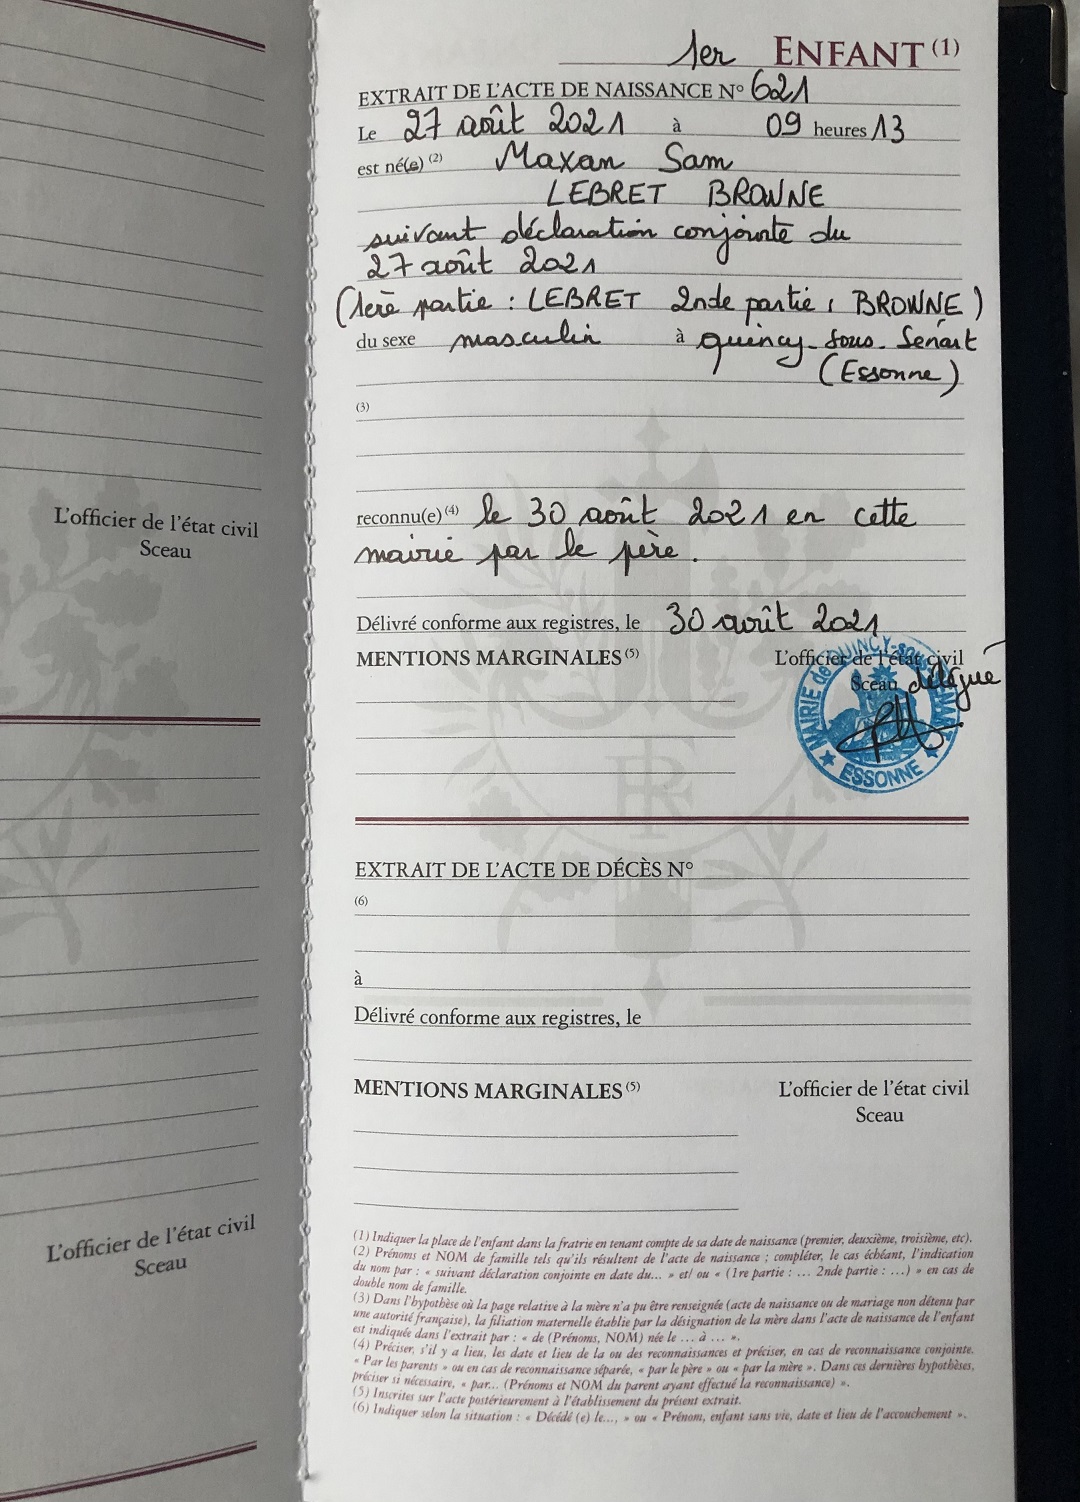 L'officier de l'état civil
Sceau
L'officier de l'état civil
Sceau
1er ENFANT (1)
EXTRAIT DE L'ACTE DE NAISSANCE N° 621
Le 27 août 2021 à 09 heures 13
est né(e) (2) Maxan Sam
LEBRET BROWNE
suivant déclaration conjointe du
27 août 2021
(1ère partie : LEBRET 2nde partie : BROWNE)
du sexe masculin à Quincy-sous-Sénart
(Essonne)
(3)
reconnu(e) (4) le 30 août 2021 en cette
mairie par le père.
Délivré conforme aux registres, le 30 août 2021
MENTIONS MARGINALES (5) L'officier de l'état civil
Sceau délégué
MAIRIE de QUINCY-SOUS-SÉNART
ESSONNE
RF
EXTRAIT DE L'ACTE DE DÉCÈS N°
(6)
à
Délivré conforme aux registres, le
MENTIONS MARGINALES (5) L'officier de l'état civil
Sceau
(1) Indiquer la place de l'enfant dans la fratrie en tenant compte de sa date de naissance (premier, deuxième, troisième, etc).
(2) Prénoms et NOM de famille tels qu'ils résultent de l'acte de naissance ; compléter, le cas échéant, l'indication
du nom par : « suivant déclaration conjointe en date du... » et/ ou « (1re partie : ... 2nde partie : ...) » en cas de
double nom de famille.
(3) Dans l'hypothèse où la page relative à la mère n'a pu être renseignée (acte de naissance ou de mariage non détenu par
une autorité française), la filiation maternelle établie par la désignation de la mère dans l'acte de naissance de l'enfant
est indiquée dans l'extrait par : « de (Prénoms, NOM) née le ... à ... ».
(4) Préciser, s'il y a lieu, les date et lieu de la ou des reconnaissances et préciser, en cas de reconnaissance conjointe,
« Par les parents » ou en cas de reconnaissance séparée, « par le père » ou « par la mère ». Dans ces dernières hypothèses,
préciser si nécessaire, « par... (Prénoms et NOM du parent ayant effectué la reconnaissance) ».
(5) Inscrites sur l'acte postérieurement à l'établissement du présent extrait.
(6) Indiquer selon la situation : « Décédé (e) le..., » ou « Prénom, enfant sans vie, date et lieu de l'accouchement ».